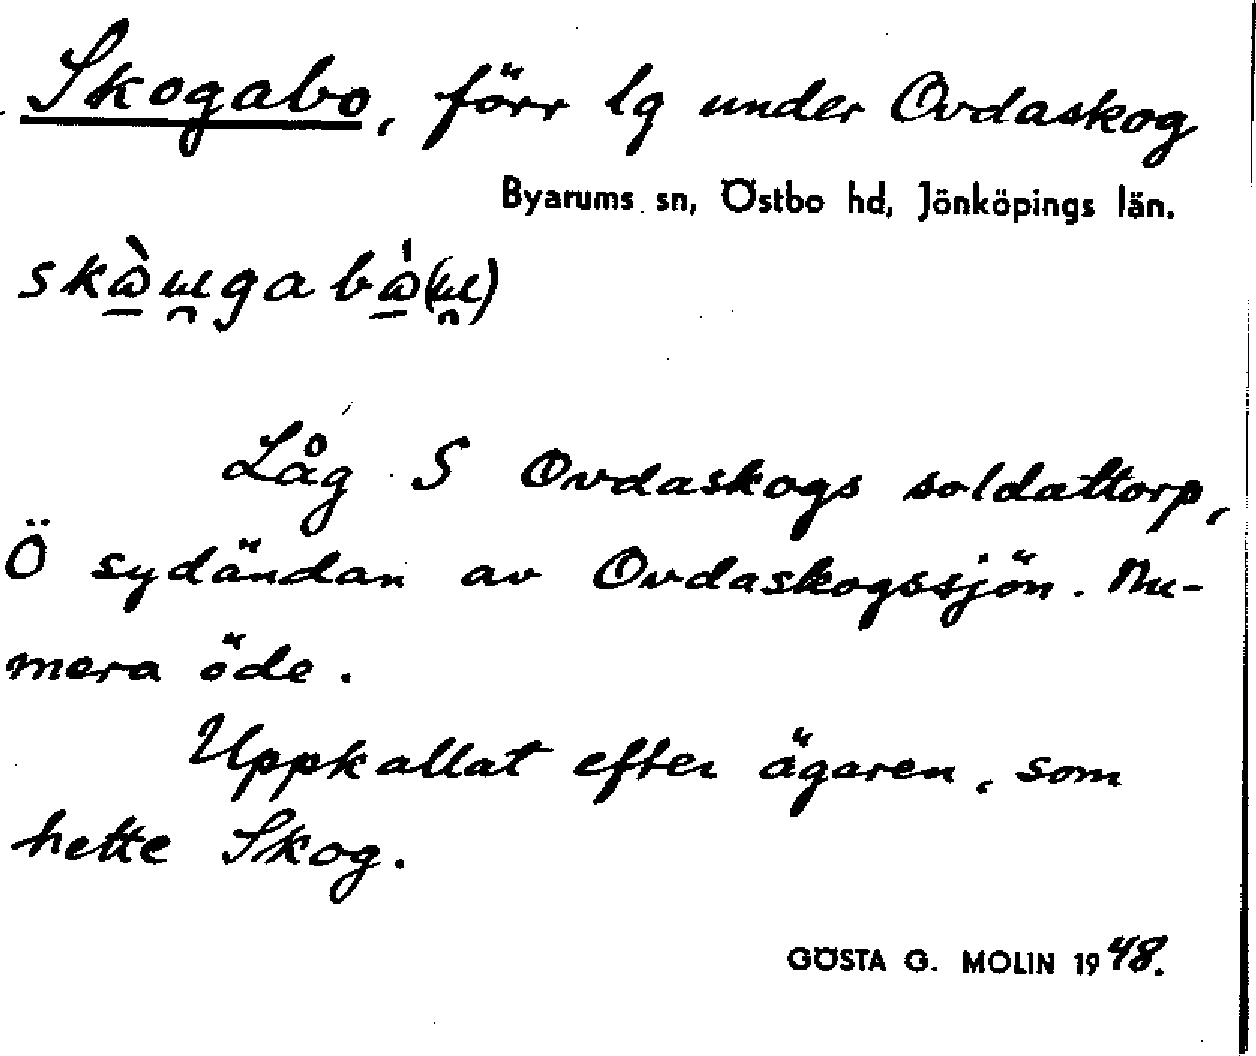 Skogabo, förr lg under Ovdaskog
Byarums sn, Östbo hd, Jönköpings län.
Låg S Ovdaskogs soldattorp,
Ö sydändan av Ovdaskogssjön. Nu-
mera öde.
Uppkallat efter ägaren, som
hette Skog.
GÖSTA G. MOLIN 1948.